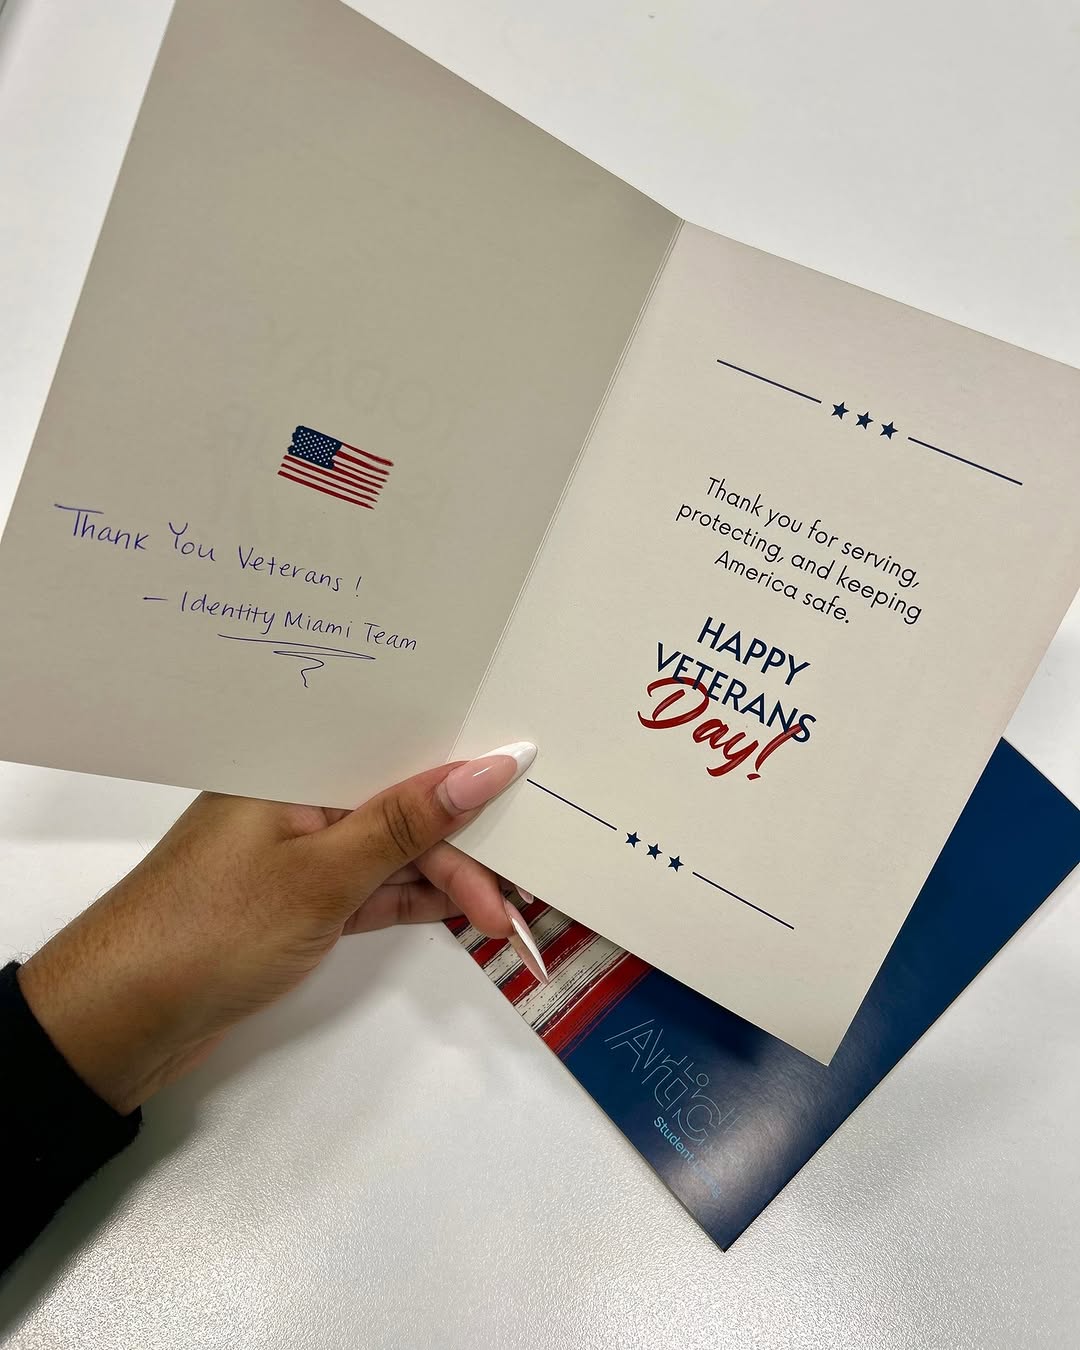 Thank You Veterans!
– Identity Miami Team
Thank you for serving,
protecting, and keeping
America safe.
HAPPY
VETERANS
Day!
Student